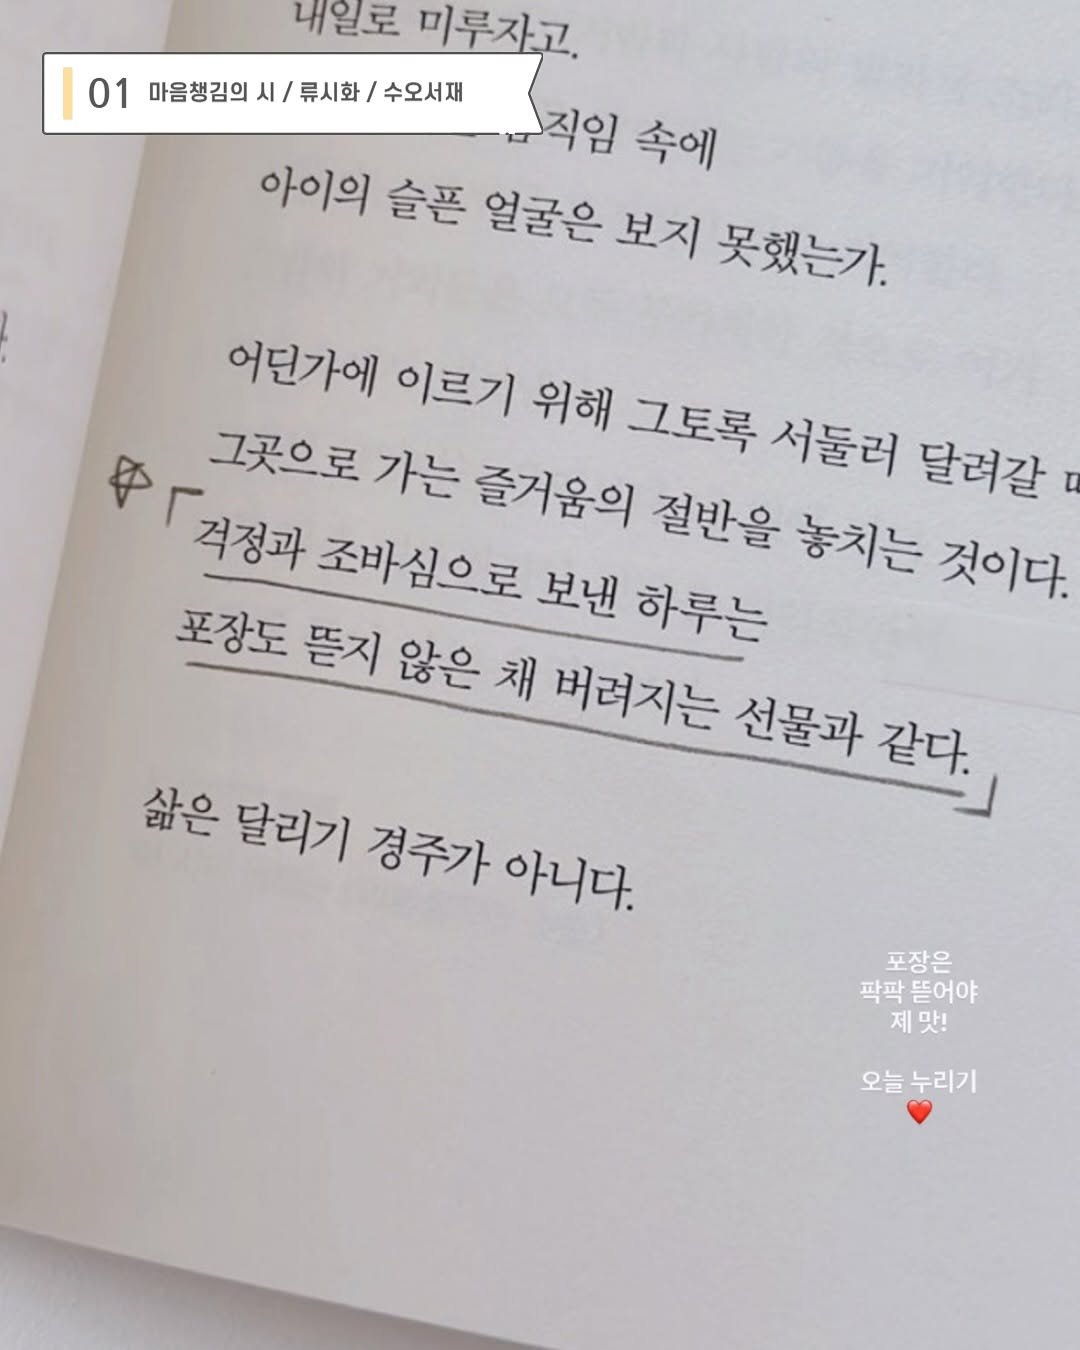 내일로 미루자고.
01 마음챙김의 시 / 류시화 / 수오서재
직임 속에
아이의 슬픈 얼굴은 보지 못했는가.
어딘가에 이르기 위해 그토록 서둘러 달려갈
그곳으로 가는 즐거움의 절반을 놓치는 것이다.
걱정과 조바심으로 보낸 하루는
포장도 뜯지 않은 채 버려지는 선물과 같다.
삶은 달리기 경주가 아니다.
포장은
팍팍 뜯어야
제 맛!
오늘 누리기